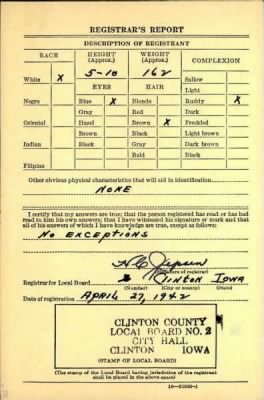 REGISTRAR'S REPORT
DESCRIPTION OF REGISTRANT
RACE HEIGHT (Approx.) WEIGHT (Approx.) COMPLEXION
White X 5-10 162 Sallow
Light
EYES HAIR
Negro Blue X Blonde Ruddy X
Gray Red Dark
Oriental Hazel Brown X Freckled
Brown Black Light brown
Indian Black Gray Dark brown
Bald Black
Filipino
Other obvious physical characteristics that will aid in identification
NONE
I certify that my answers are true; that the person registered has read or has had
read to him his own answers; that I have witnessed his signature or mark and that
all of his answers of which I have knowledge are true, except as follows:
NO EXCEPTIONS
(Signature of registrar)
Registrar for Local Board 2 CLINTON IOWA
(Number) (City or county) (State)
Date of registration APRIL 27, 1942
CLINTON COUNTY
LOCAL BOARD NO. 2
CITY HALL
CLINTON IOWA
(STAMP OF LOCAL BOARD)
(The stamp of the Local Board having jurisdiction of the registrant
shall be placed in the above space)